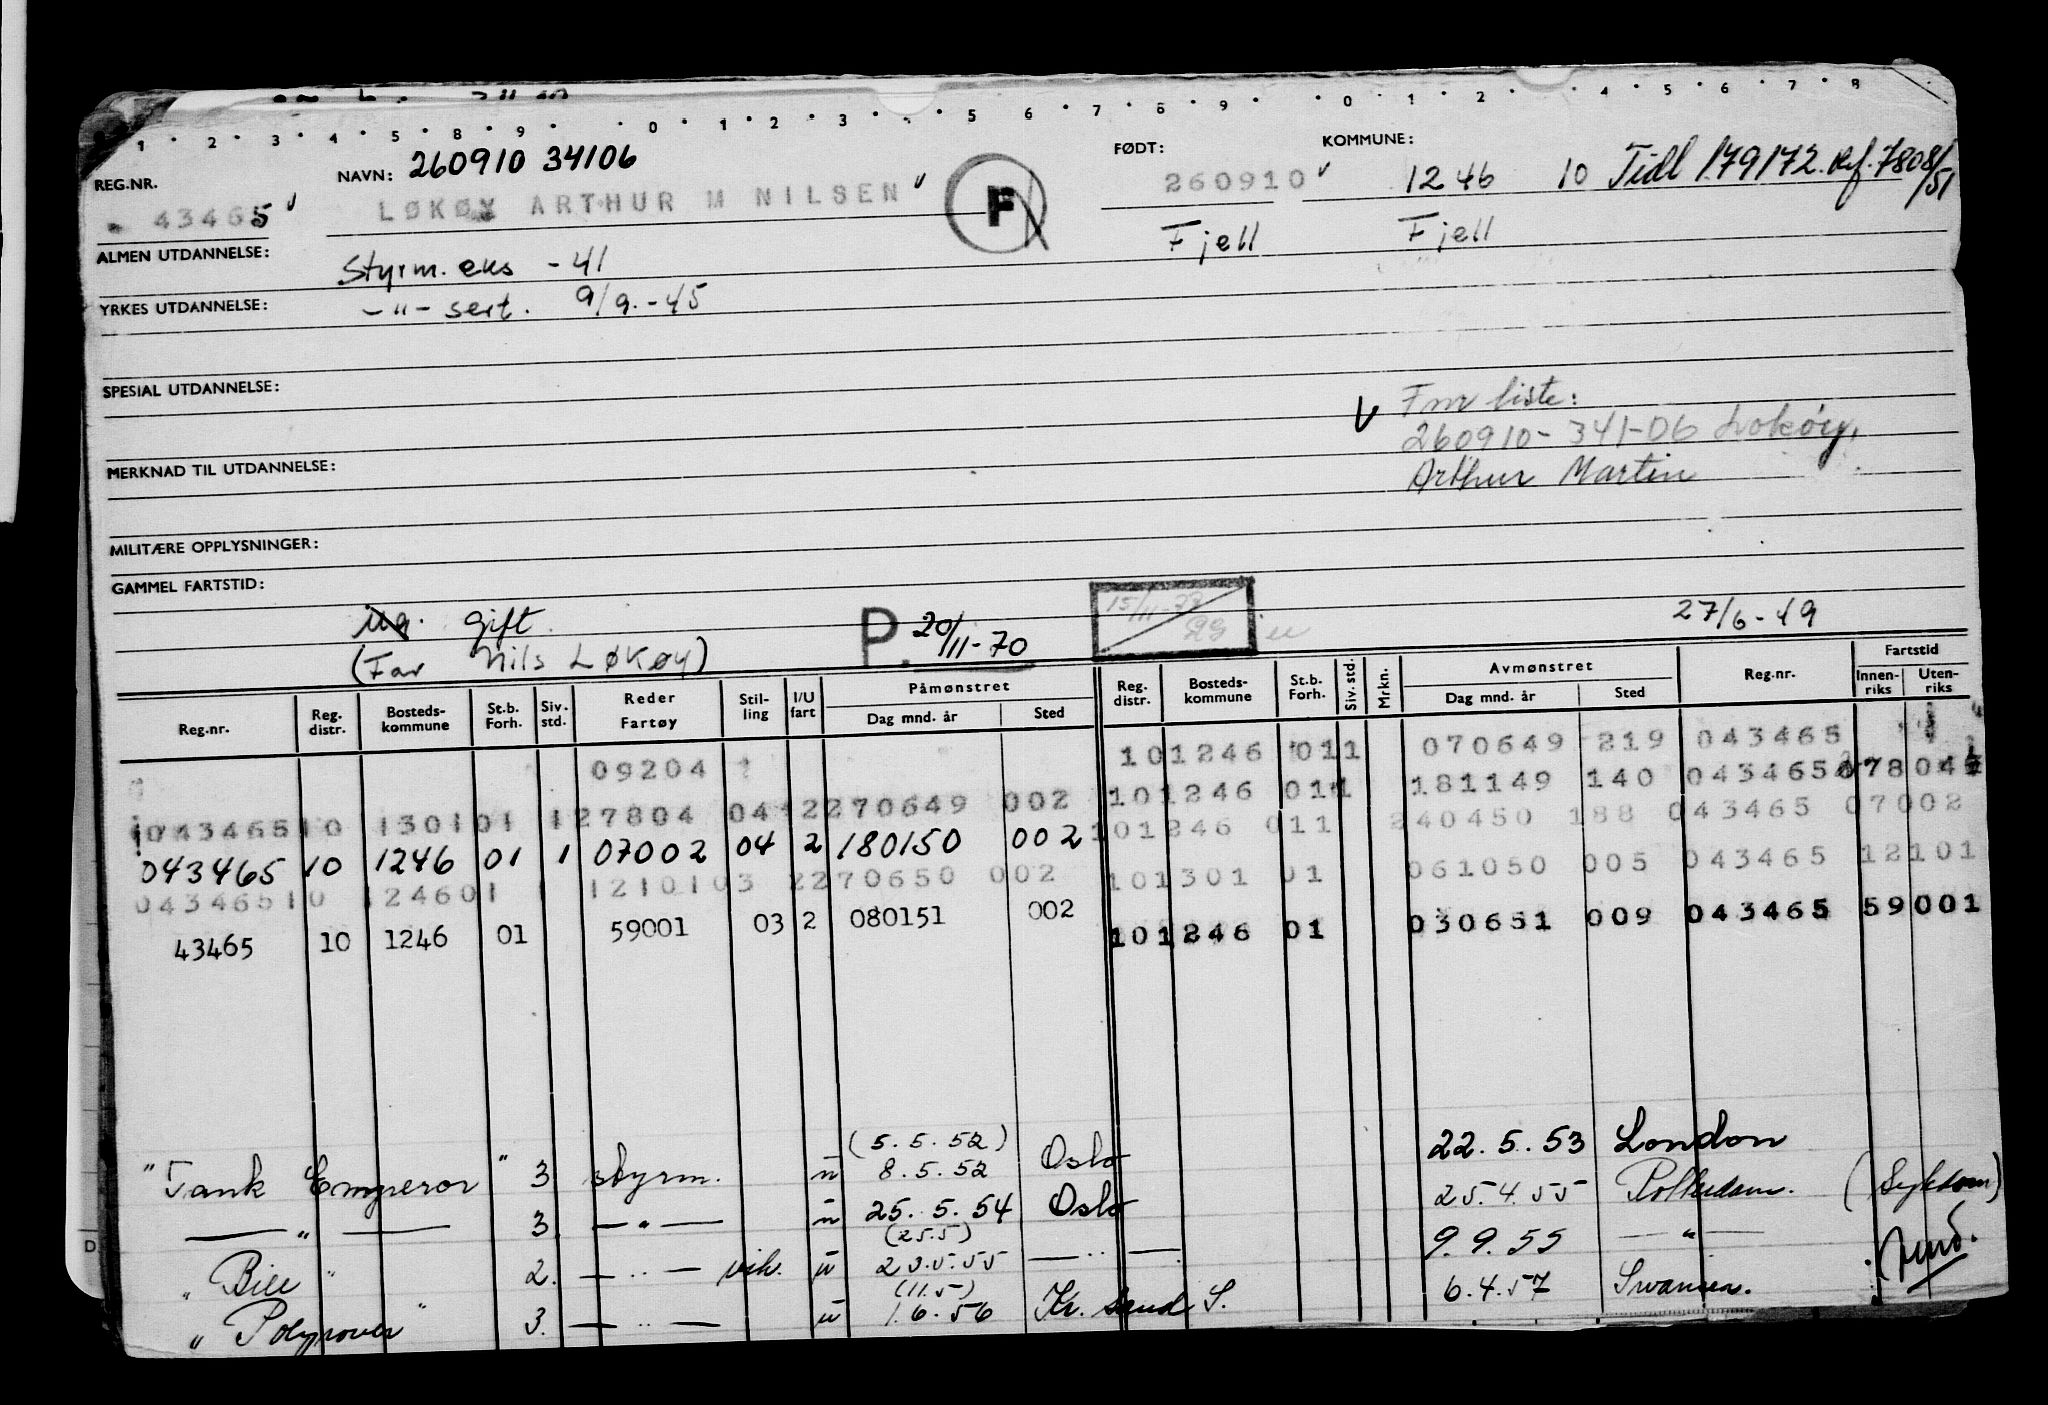 1 · 2 · 3 · 4 · 5 · 8 · 9 · · 0 · 1 · 2 · 3 · · 5 · 6 · 7 · 8 · 9 · · 0 · 1 · 2 · · 4 · 5 · 6 · 7 · 8
REG.NR. NAVN: 260910 34106 FØDT: KOMMUNE:
43465 LØKØY ARTHUR M NILSEN F 260910 1246 10 Tidl 179172. Ref. 7808/51
ALMEN UTDANNELSE: Styrm. eks - 41 Fjell Fjell
YRKES UTDANNELSE: -"- sert. 9/9.-45
SPESIAL UTDANNELSE:
Fnr liste:
260910-341-06 Løkøy,
MERKNAD TIL UTDANNELSE: Arthur Martin
MILITÆRE OPPLYSNINGER:
GAMMEL FARTSTID:
Ug. gift. P. 20/11-70 15/11-73 27/6-49
(Far Nils LØKØY)
Reg.nr. Reg. distr. Bosteds-kommune St.b. Forh. Siv. std. Reder Fartøy Stil-ling I/U fart Påmønstret Dag mnd. år Sted Reg. distr. Bosteds-kommune St.b. Forh. Siv. std. Mrkn. Avmønstret Dag mnd. år Sted Reg.nr. Fartstid Innen-riks Uten-riks
09204 101246 011 070649 219 043465
04346510 130101 127804 04 2270649 002 101246 011 181149 140 043465 07804
043465 10 1246 01 1 07002 04 2 180150 002 101246 011 240450 188 043465 07002
04346510 124601 1 1210103 2270650 002 101301 01 061050 005 043465 12101
43465 10 1246 01 59001 03 2 080151 002 101246 01 030651 009 043465 59001
(5.5.52)
"Tank Emperor" 3 styrm. u 8.5.52 Oslo 22.5.53 London
— " — 3 — " — u 25.5.54 Oslo 25.4.55 Rotterdam. (Sykdom)
(25.5)
"Bill" 2. — " — vik. u 23.5.55 — " — 9.9.55 — " —
(11.5)
"Polyrover" 3. — " — u 1.6.56 Kr. sand S. 6.4.57 Swansea.
D